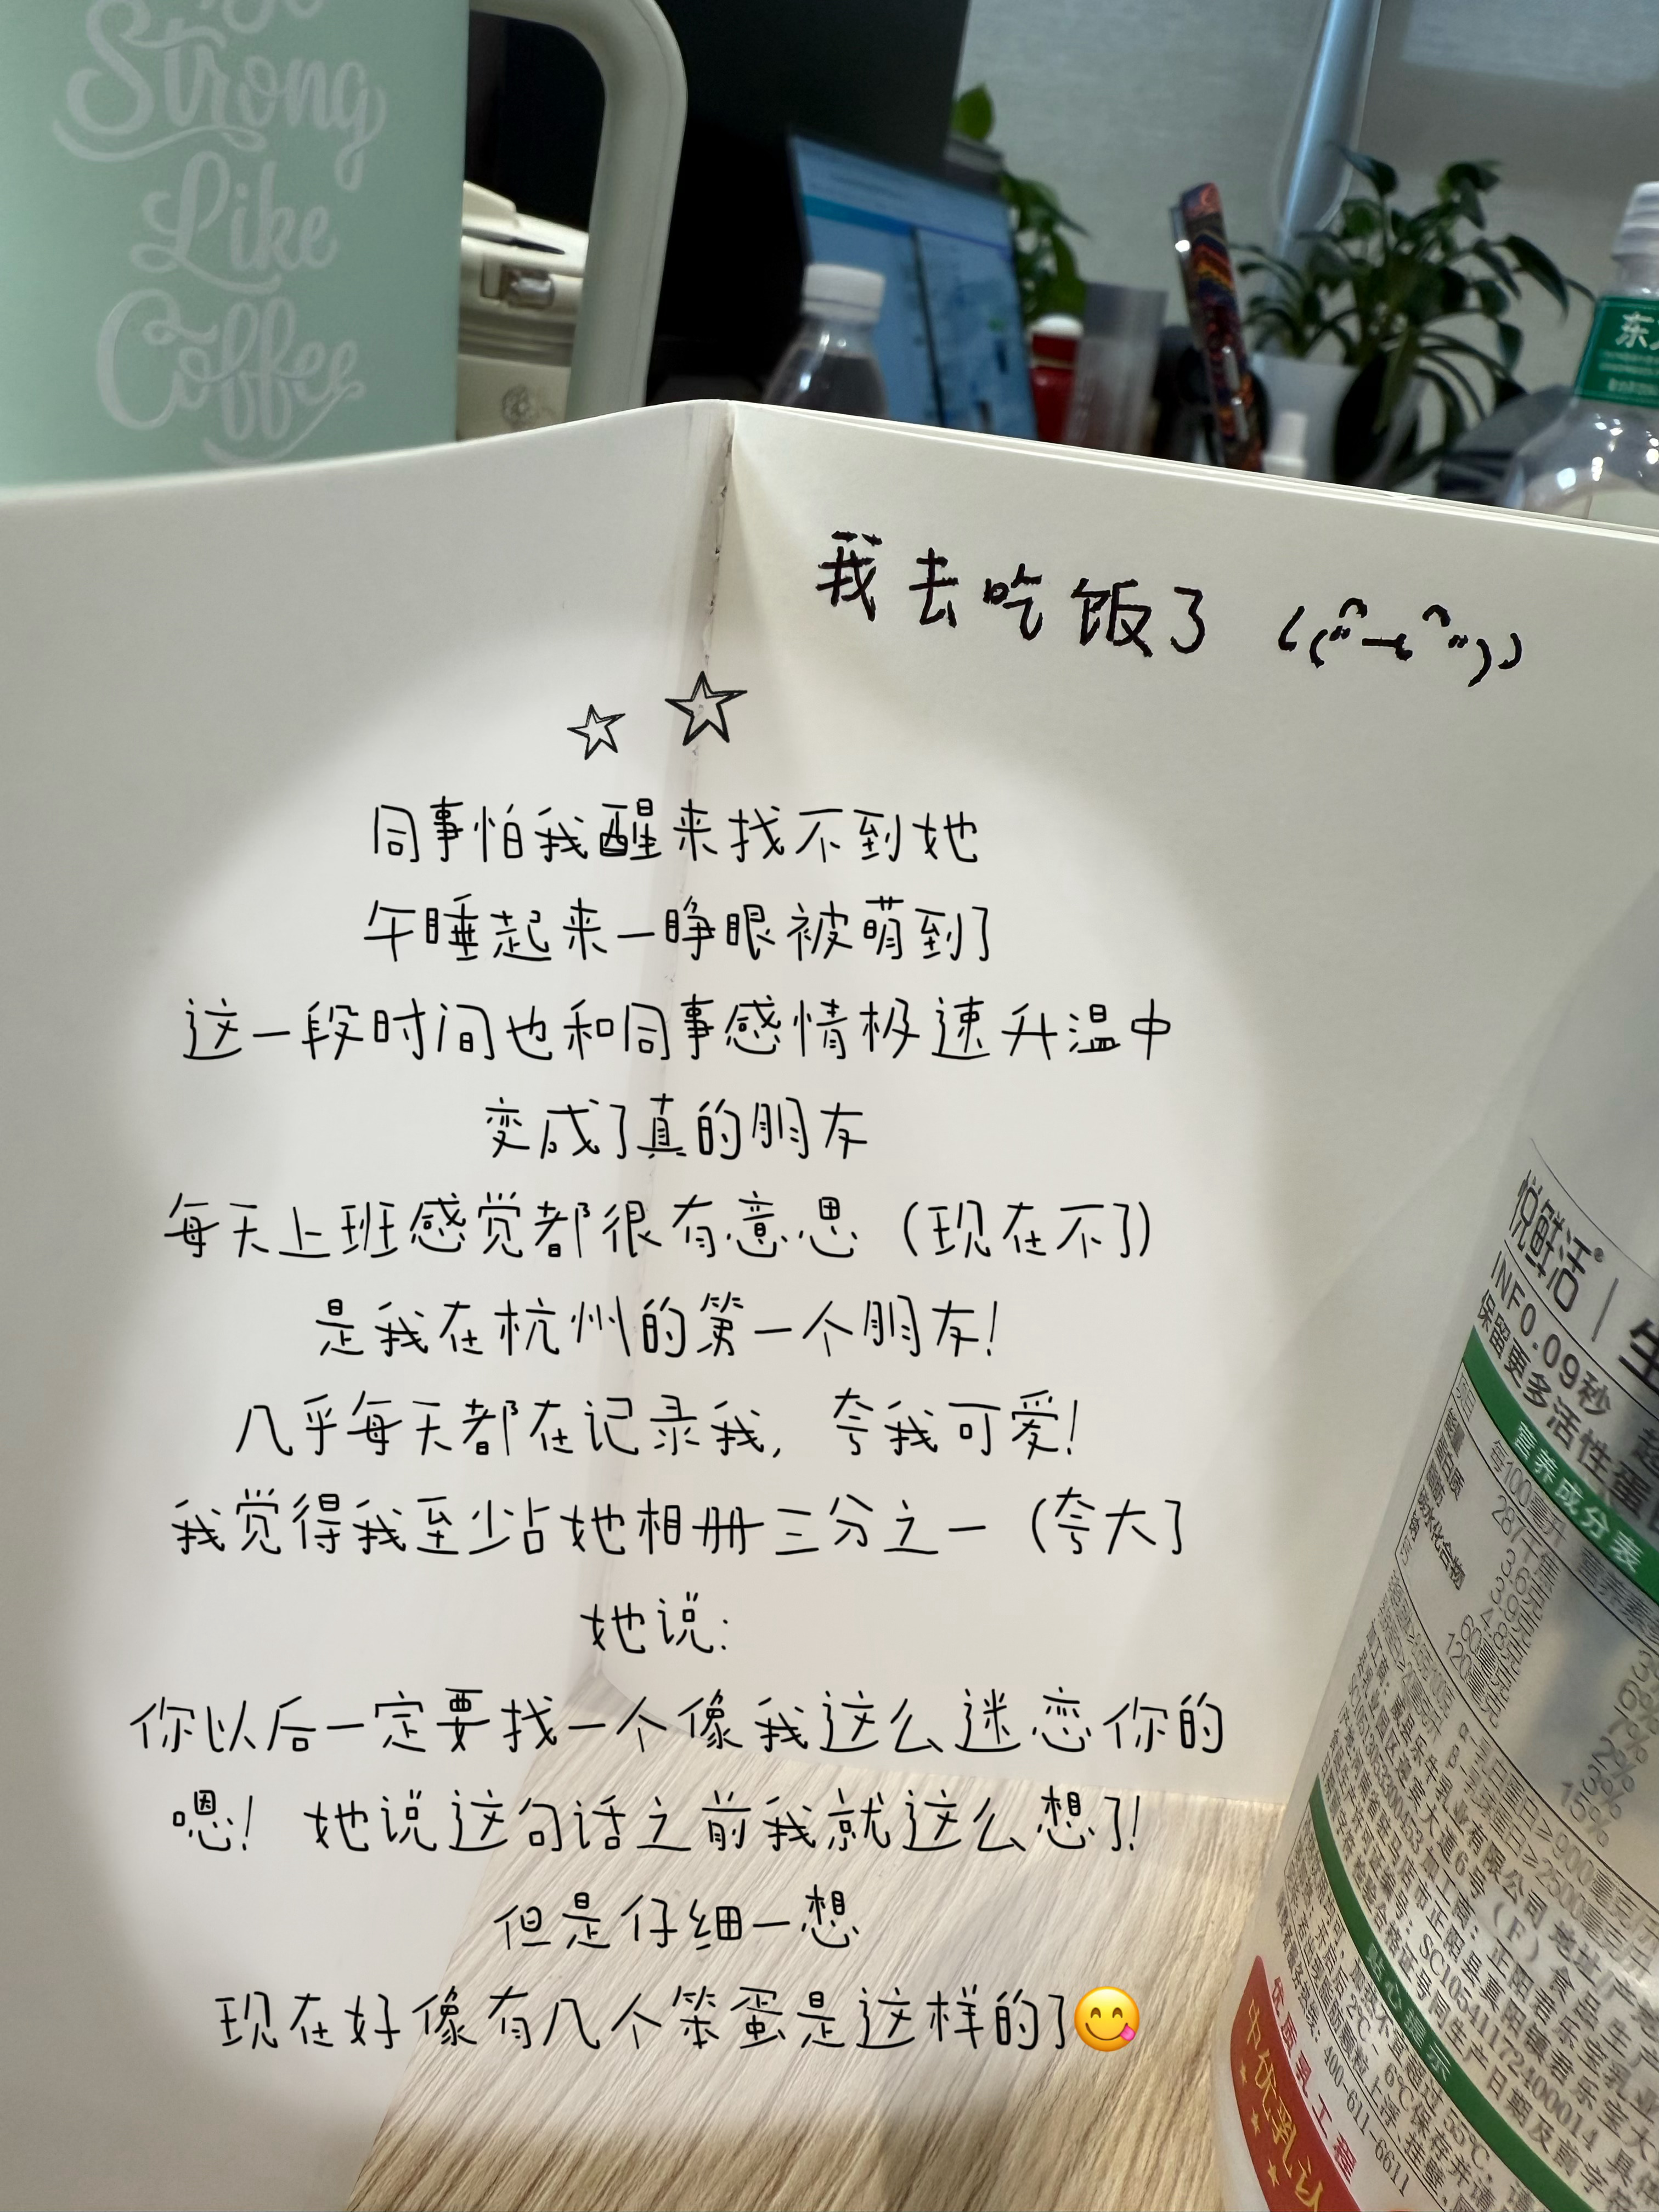 Strong
Like
Coffee
我去吃饭了
同事怕我醒来找不到她
午睡起来一睁眼被萌到了
这一段时间也和同事感情极速升温中
变成了真的朋友
每天上班感觉都很有意思（现在不了）
是我在杭州的第一个朋友！
几乎每天都在记录我，夸我可爱！
我觉得我至少占她相册三分之一（夸大了
她说：
你以后一定要找一个像我这么迷恋你的
嗯！她说这句话之前我就这么想了！
但是仔细一想
现在好像有几个笨蛋是这样的了😋
东
悦鲜活®
INF0.09秒
保留更多活性蛋
营养成分表
贴心提示
优质乳工程
400-611-6611